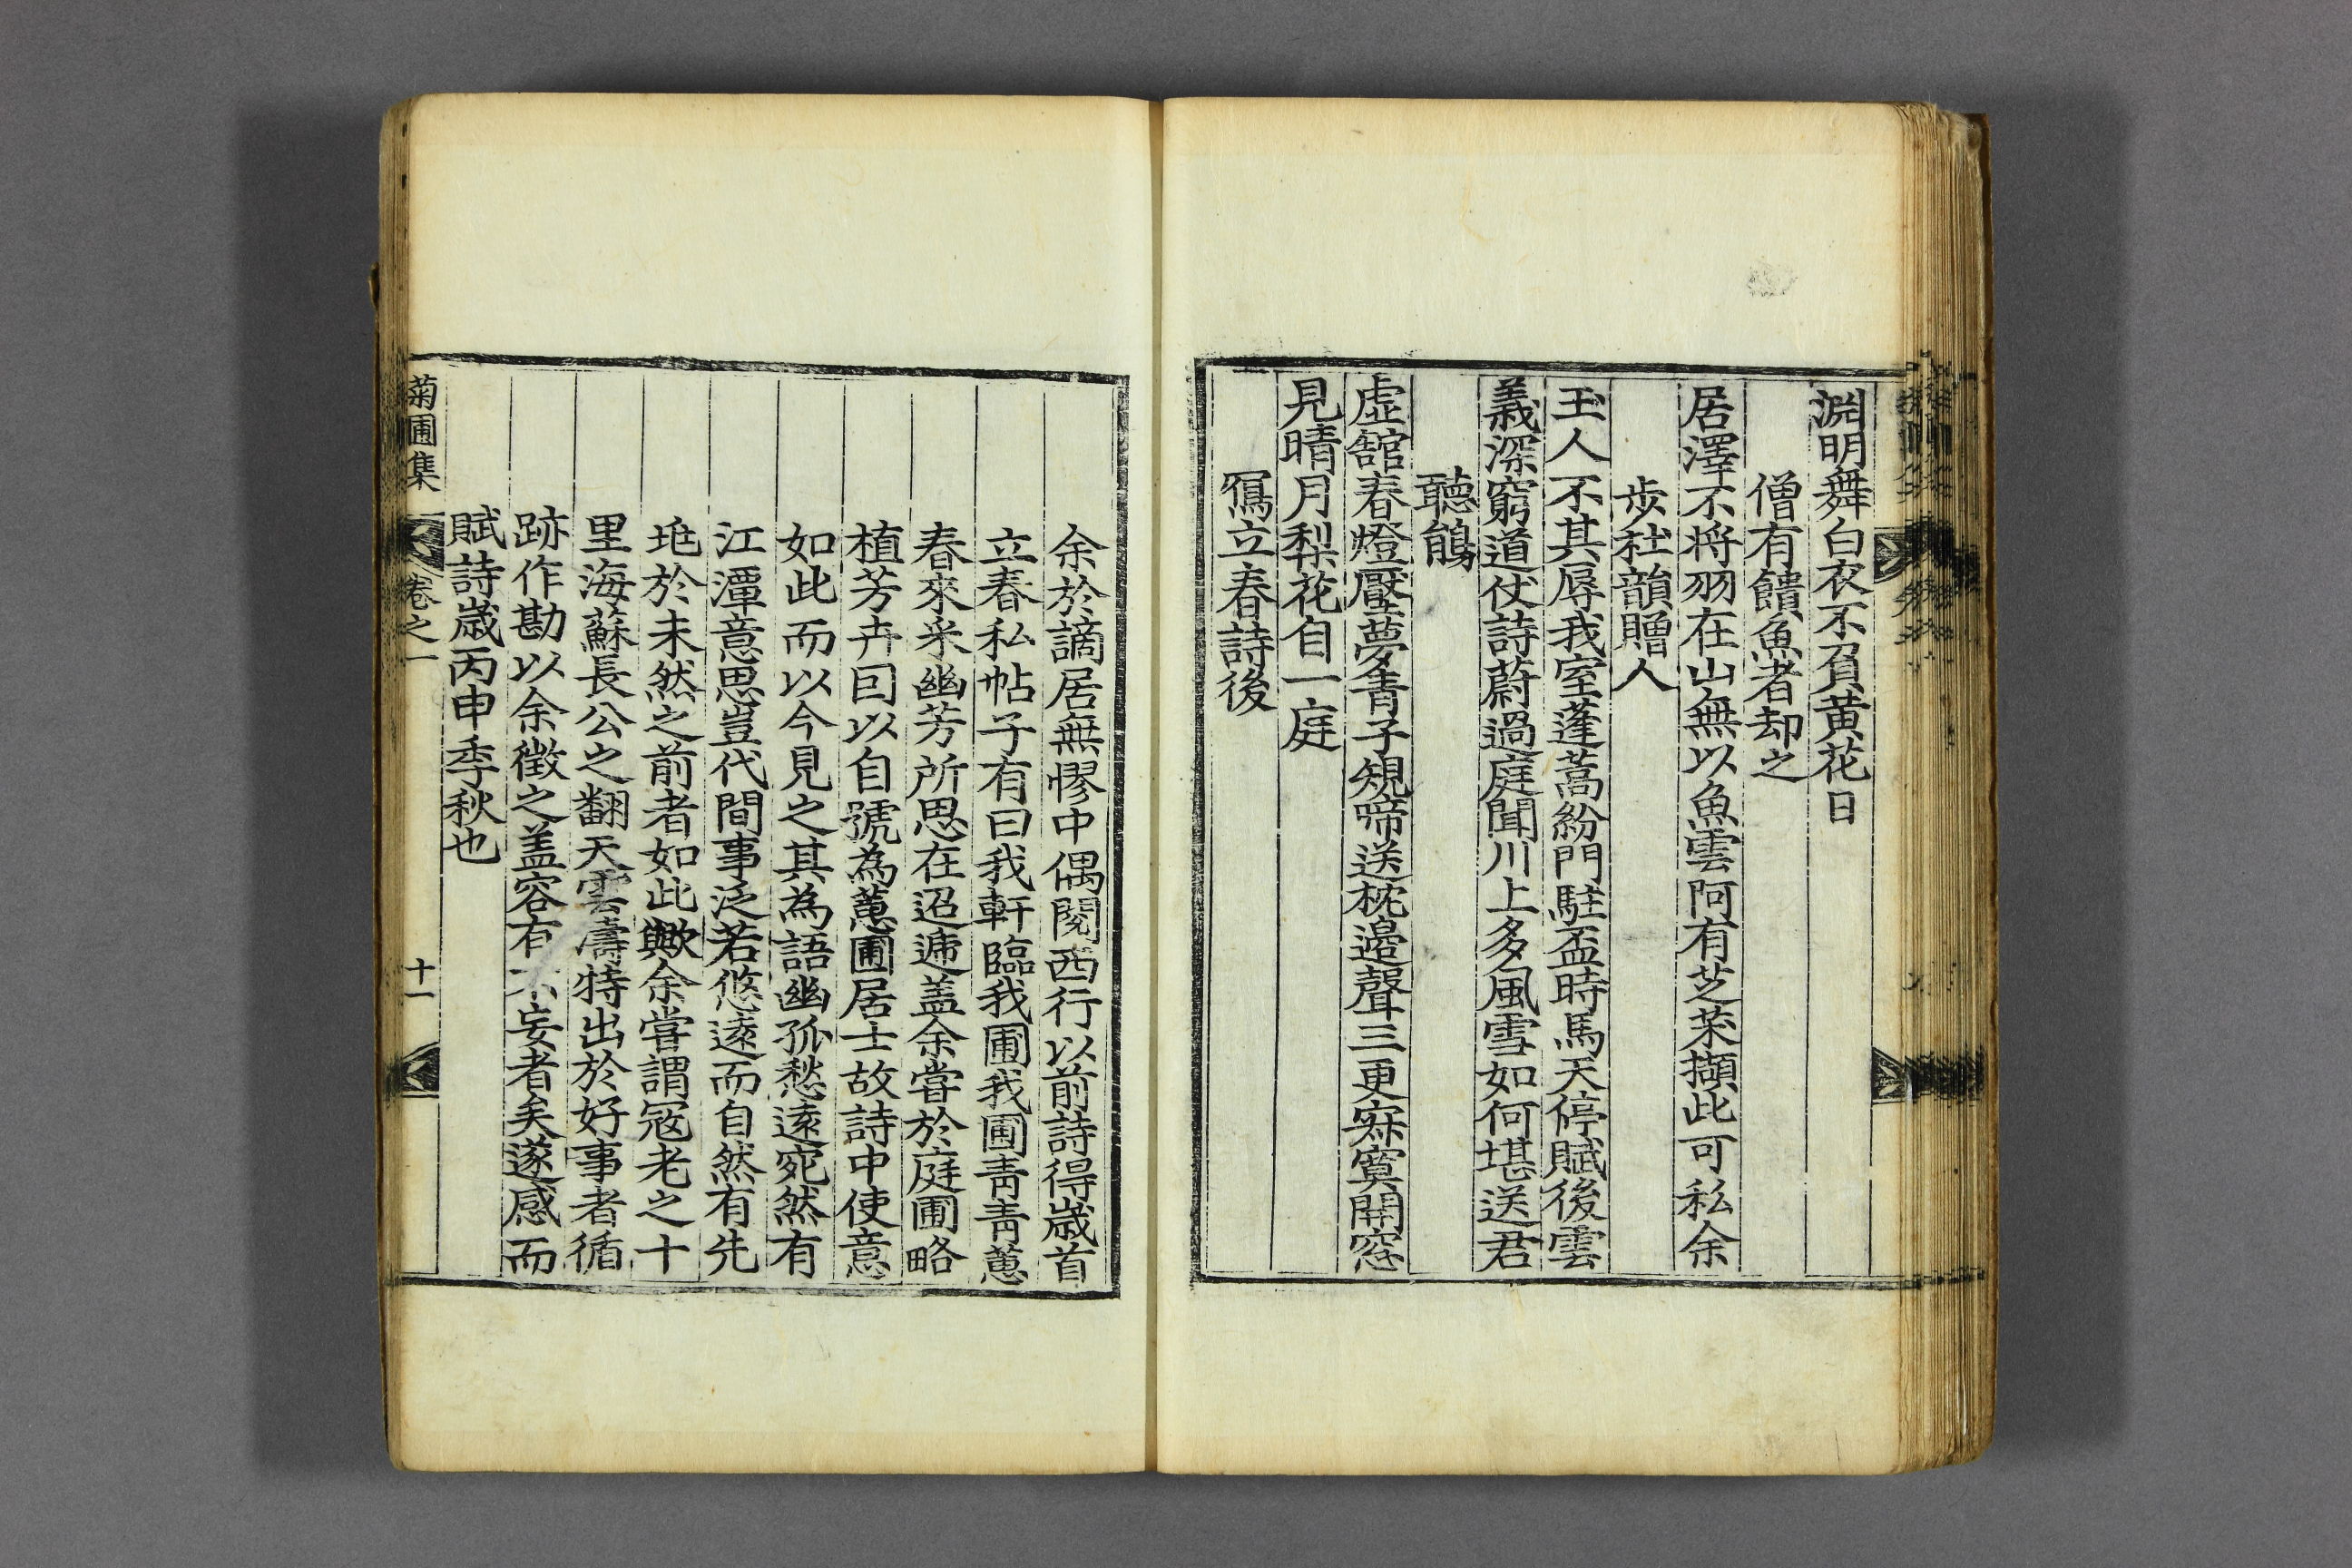 淵明舞白衣不負黃花日
僧有饋魚者却之
居澤不將羽在山無以魚雲阿有芝茱擷此可私余
步杜韻贈人
玉人不其辱我室蓬蒿紛門駐盃時馬天停賦後雲
義深窮道仗詩蔚過庭聞川上多風雪如何堪送君
聽鵑
虛舘春燈壓夢靑子規啼送枕邊聲三更寂寞開窓
見晴月梨花自一庭
寫立春詩後
余於謫居無憀中偶閱西行以前詩得歲首
立春私帖子有曰我軒臨我圃我圃靑靑蕙
春來采幽芳所思在迢遞盖余嘗於庭圃略
植芳卉囙以自號為蕙圃居士故詩中使意
如此而以今見之其為語幽孤愁遠宛然有
江潭意思豈代間事泛若悠遠而自然有先
兆於未然之前者如此歟余嘗謂寇老之十
里海蘇長公之翻天雲濤特出於好事者循
跡作勘以余徵之盖容有不妄者矣遂感而
賦詩歲丙申季秋也
菊圃集 卷之一 十一